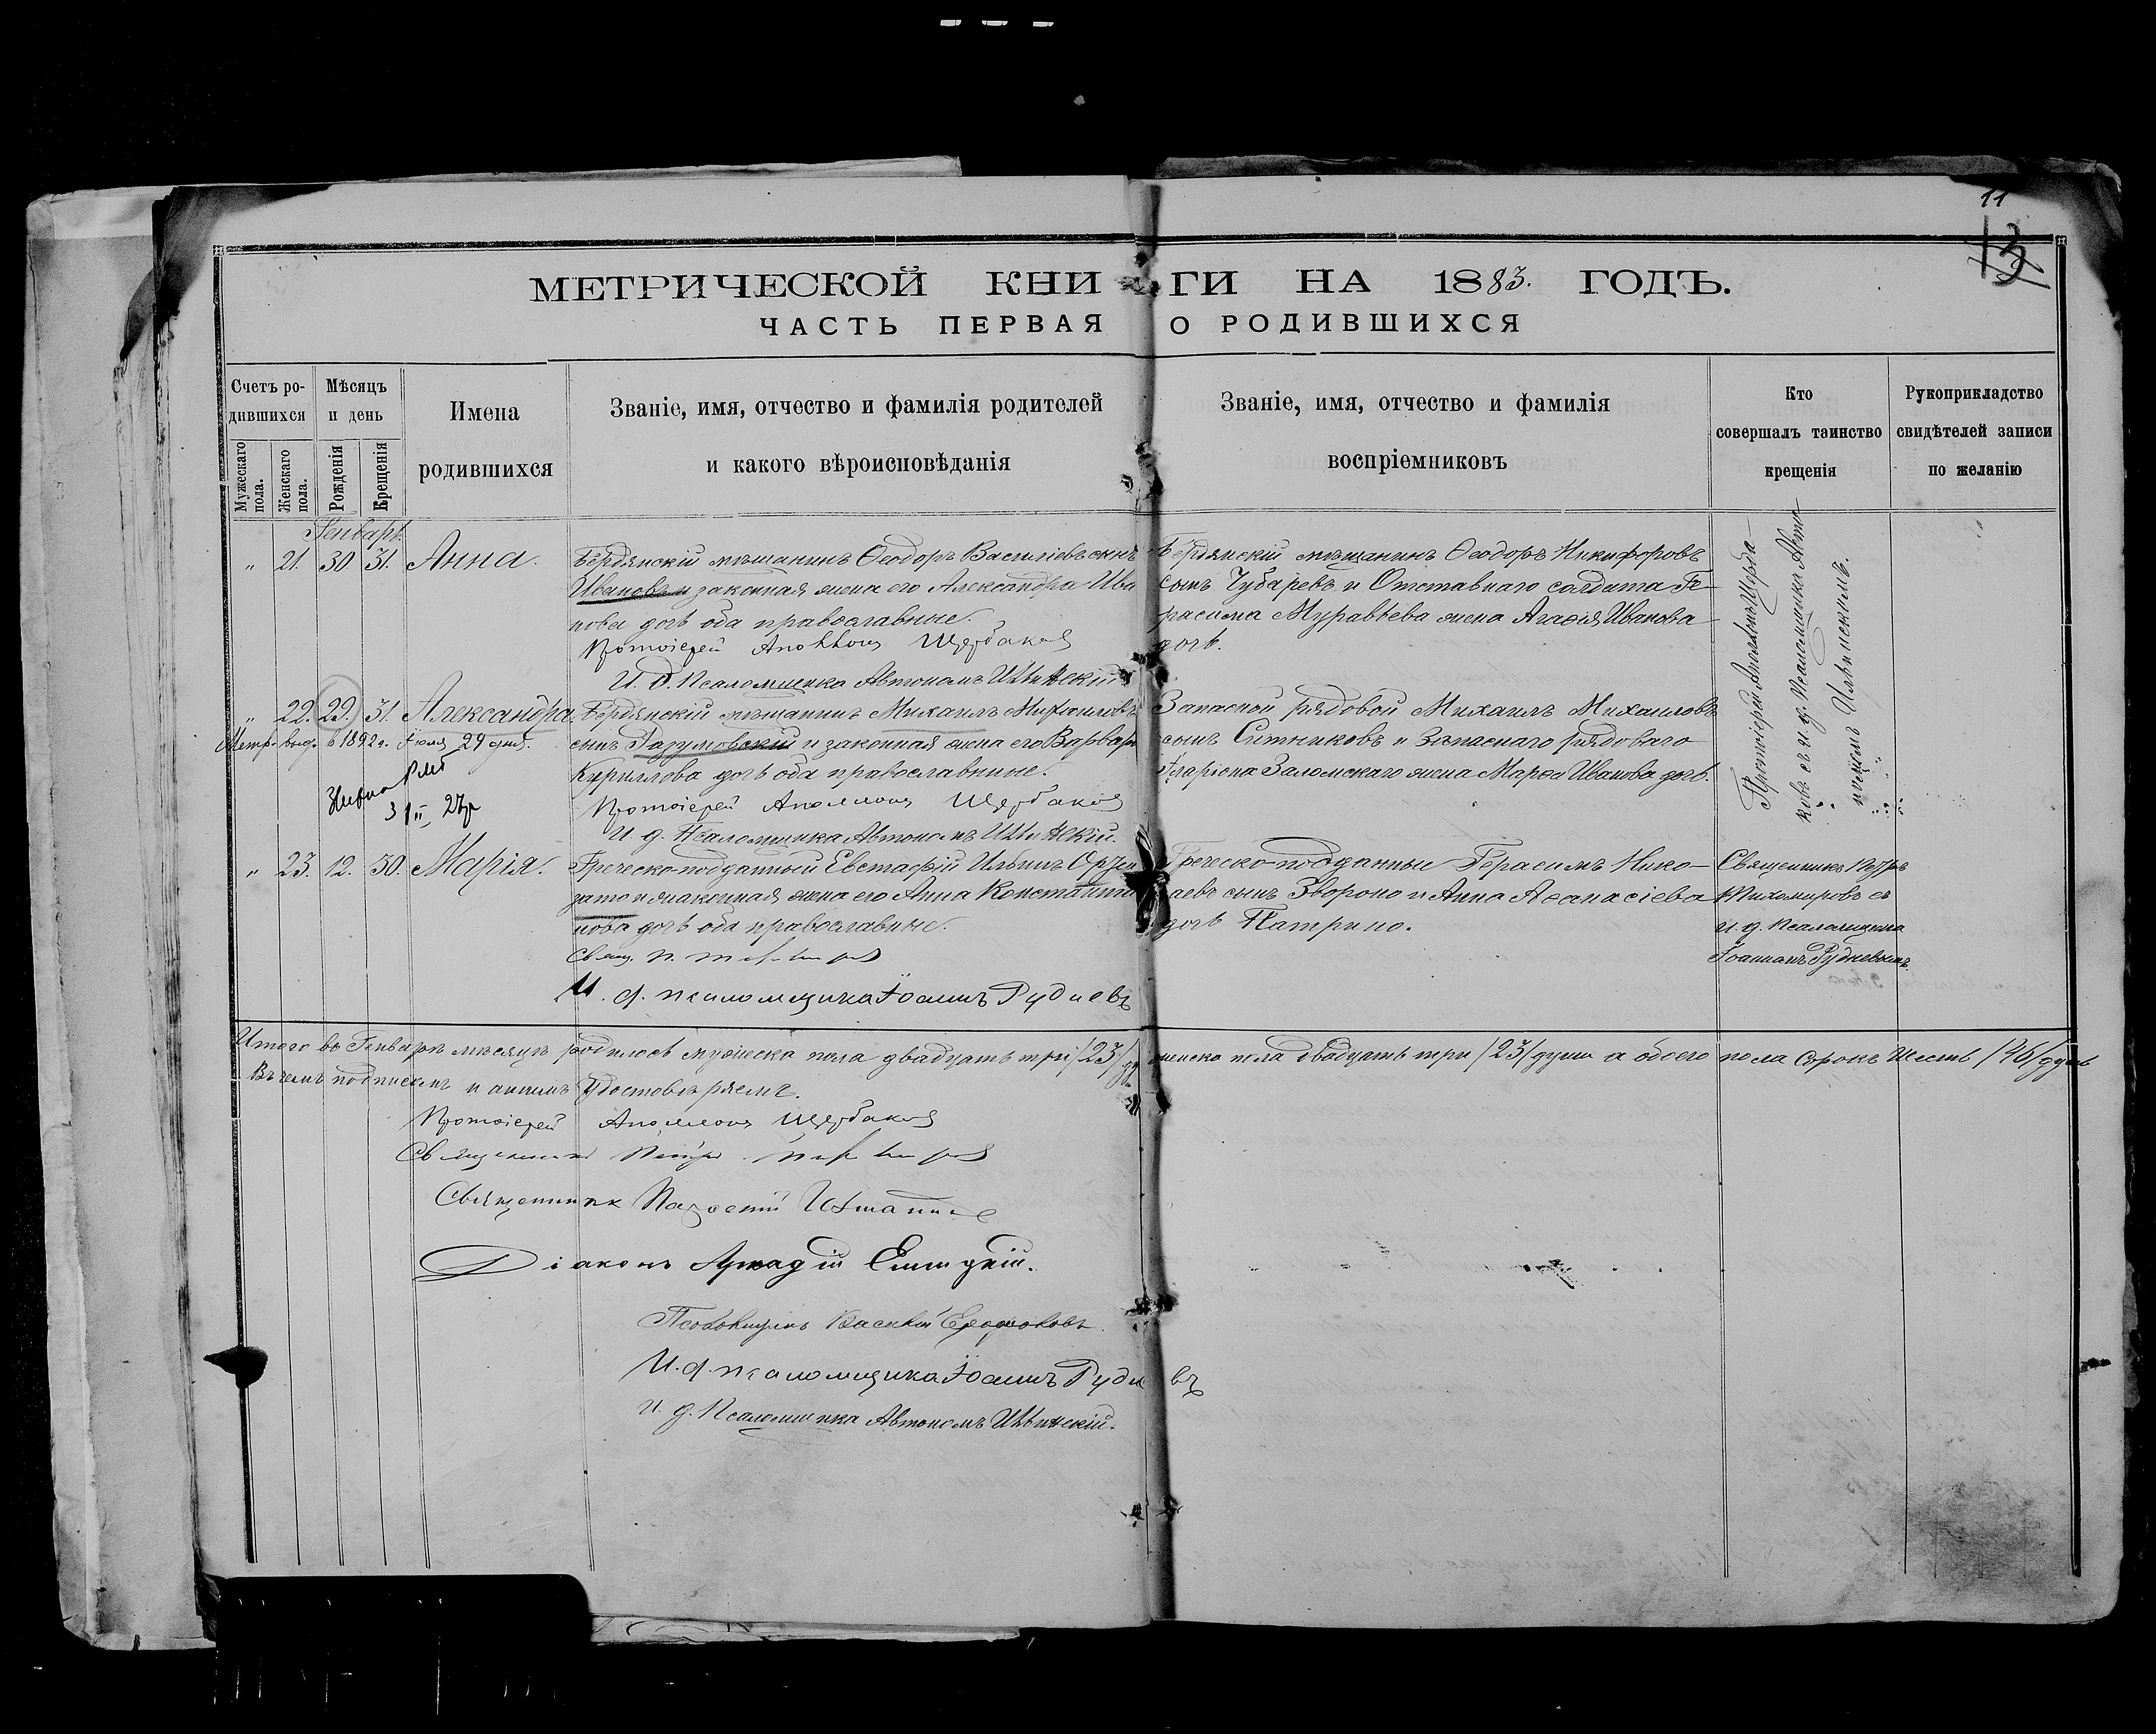 11
13
МЕТРИЧЕСКОЙ КНИГИ НА 1883. ГОДЪ.
ЧАСТЬ ПЕРВАЯ О РОДИВШИХСЯ
Счетъ ро-
дившихся
Мужескаго пола.
Женскаго пола.
Мѣсяцъ
и день
Рожденія
Крещенія
Имена
родившихся
Званіе, имя, отчество и фамилія родителей
и какого вѣроисповѣданія
Званіе, имя, отчество и фамилія
воспріемниковъ
Кто
совершалъ таинство
крещенія
Рукоприкладство
свидѣтелей записи
по желанію
Генварь
" 21. 30 31. Анна.
Бердянскій мѣщанинъ Ѳеодоръ Васильевъ сынъ
Ивановъ и законная жена его Александра Ива
нова дочь оба православные.
Протоіерей Аполлонъ Щербаковъ
И. д. Псаломщика Автономъ Ильинскій
Бердянскій мѣщанинъ Ѳеодоръ Никифоровъ
сынъ Чубаревъ и Отставнаго солдата Ге-
расима Муравьева жена Агаѳія Иванова
дочь.
Протоіерей Аполлонъ Щерба-
ковъ съ и. д. Псаломщика Авто-
номомъ Ильинскимъ.
" 22. 29. 31. Александра
Метр. выд. в 1892 г. Іюля 29 дня.
Бердянскій мѣщанинъ Михаилъ Михаиловъ
сынъ Разумовскій и законная жена его Варвара
Кириллова дочь оба православные.
Протоіерей Аполлонъ Щербаковъ
И. д. Псаломщика Автономъ Ильинскій.
Запасной рядовой Михаилъ Михаиловъ
сынъ Ситниковъ и Запаснаго рядоваго
Иларіона Заломскаго жена Марѳа Иванова дочь.
" 23. 12. 30. Марія.
Греческо-подданный Евстафій Ильинъ
и законная жена его Анна Константи
нова дочь оба православные.
И. д. псаломщика Іоаннъ Рудневъ
Греческо-подданные Герасимъ Нико-
лаевъ сынъ Звороно и Анна Аѳанасіева
дочь Патрино.
Священникъ Петръ
Тихомировъ съ
и. д. Псаломщика
Іоанномъ Рудневымъ.
Итого въ Генварѣ мѣсяцѣ родилось мужеска пола двадцать три /23/ женска пола двадцать три /23/ души а обоего пола сорокъ шесть /46/ душъ
Въ чемъ подписомъ и удостовѣряемъ.
Протоіерей Аполлонъ Щербаковъ
Священникъ Петръ Тихомировъ
Священникъ
Діаконъ Аркадій
Псаломщикъ Василій
И. д. псаломщика Іоаннъ Рудневъ
И. д. Псаломщика Автономъ Ильинскій.